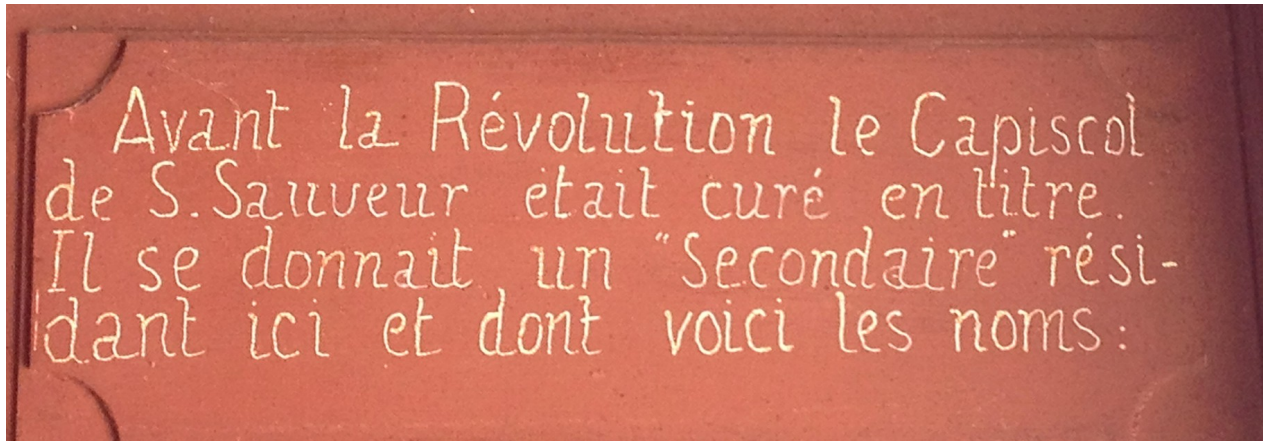 Avant la Révolution le Capiscol
de S. Sauveur était curé en titre.
Il se donnait un "Secondaire" rési-
dant ici et dont voici les noms: